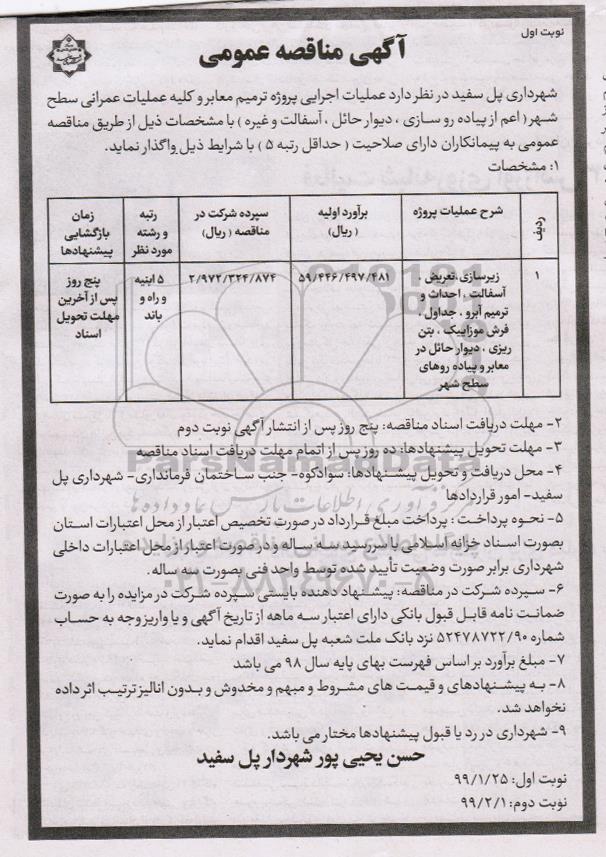 نوبت اول
آگهی مناقصه عمومی
شهرداری پل سفید در نظر دارد عملیات اجرایی پروژه ترمیم معابر و کلیه عملیات عمرانی سطح
شهر ( اعم از پیاده رو سازی ، دیوار حائل ، آسفالت و غیره ) با مشخصات ذیل از طریق مناقصه
عمومی به پیمانکاران دارای صلاحیت ( حداقل رتبه ۵ ) با شرایط ذیل واگذار نماید.
۱: مشخصات
ردیف
شرح عملیات پروژه
برآورد اولیه
( ریال)
سپرده شرکت در
مناقصه ( ریال)
رتبه
و رشته
مورد نظر
زمان
بازگشایی
پیشنهادها
۱
زیرسازی ،تعریض ،
آسفالت ، احداث و
ترمیم آبرو ، جداول ،
فرش موزاییک ، بتن
ریزی ، دیوار حائل در
معابر و پیاده روهای
سطح شهر
۵۹/۴۴۶/۴۹۷/۴۸۱
۲/۹۷۲/۳۲۴/۸۷۴
۵ ابنیه
و راه و
باند
پنج روز
پس از آخرین
مهلت تحویل
اسناد
۲- مهلت دریافت اسناد مناقصه: پنج روز پس از انتشار آگهی نوبت دوم
۳- مهلت تحویل پیشنهادها: ده روز پس از اتمام مهلت دریافت اسناد مناقصه
۴- محل دریافت و تحویل پیشنهادها: سوادکوه- جنب ساختمان فرمانداری- شهرداری پل
سفید- امور قراردادها
۵- نحوه پرداخت : پرداخت مبلغ قرارداد در صورت تخصیص اعتبار از محل اعتبارات استان
بصورت اسناد خزانه اسلامی با سررسید سه ساله و در صورت اعتبار از محل اعتبارات داخلی
شهرداری برابر صورت وضعیت تأیید شده توسط واحد فنی بصورت سه ساله.
۶- سپرده شرکت در مناقصه: پیشنهاد دهنده بایستی سپرده شرکت در مزایده را به صورت
ضمانت نامه قابل قبول بانکی دارای اعتبار سه ماهه از تاریخ آگهی و یا واریز وجه به حساب
شماره ۵۲۴۷۸۷۲۲/۹۰ نزد بانک ملت شعبه پل سفید اقدام نماید.
۷- مبلغ برآورد بر اساس فهرست بهای پایه سال ۹۸ می باشد
۸- به پیشنهادهای و قیمت های مشروط و مبهم و مخدوش و بدون انالیز ترتیب اثر داده
نخواهد شد.
۹- شهرداری در رد یا قبول پیشنهادها مختار می باشد.
حسن یحیی پور شهردار پل سفید
نوبت اول: ۹۹/۱/۲۵
نوبت دوم: ۹۹/۲/۱
ParsNamadData
۰۲۱-۸۸۳۴۹۶۷۰-۵